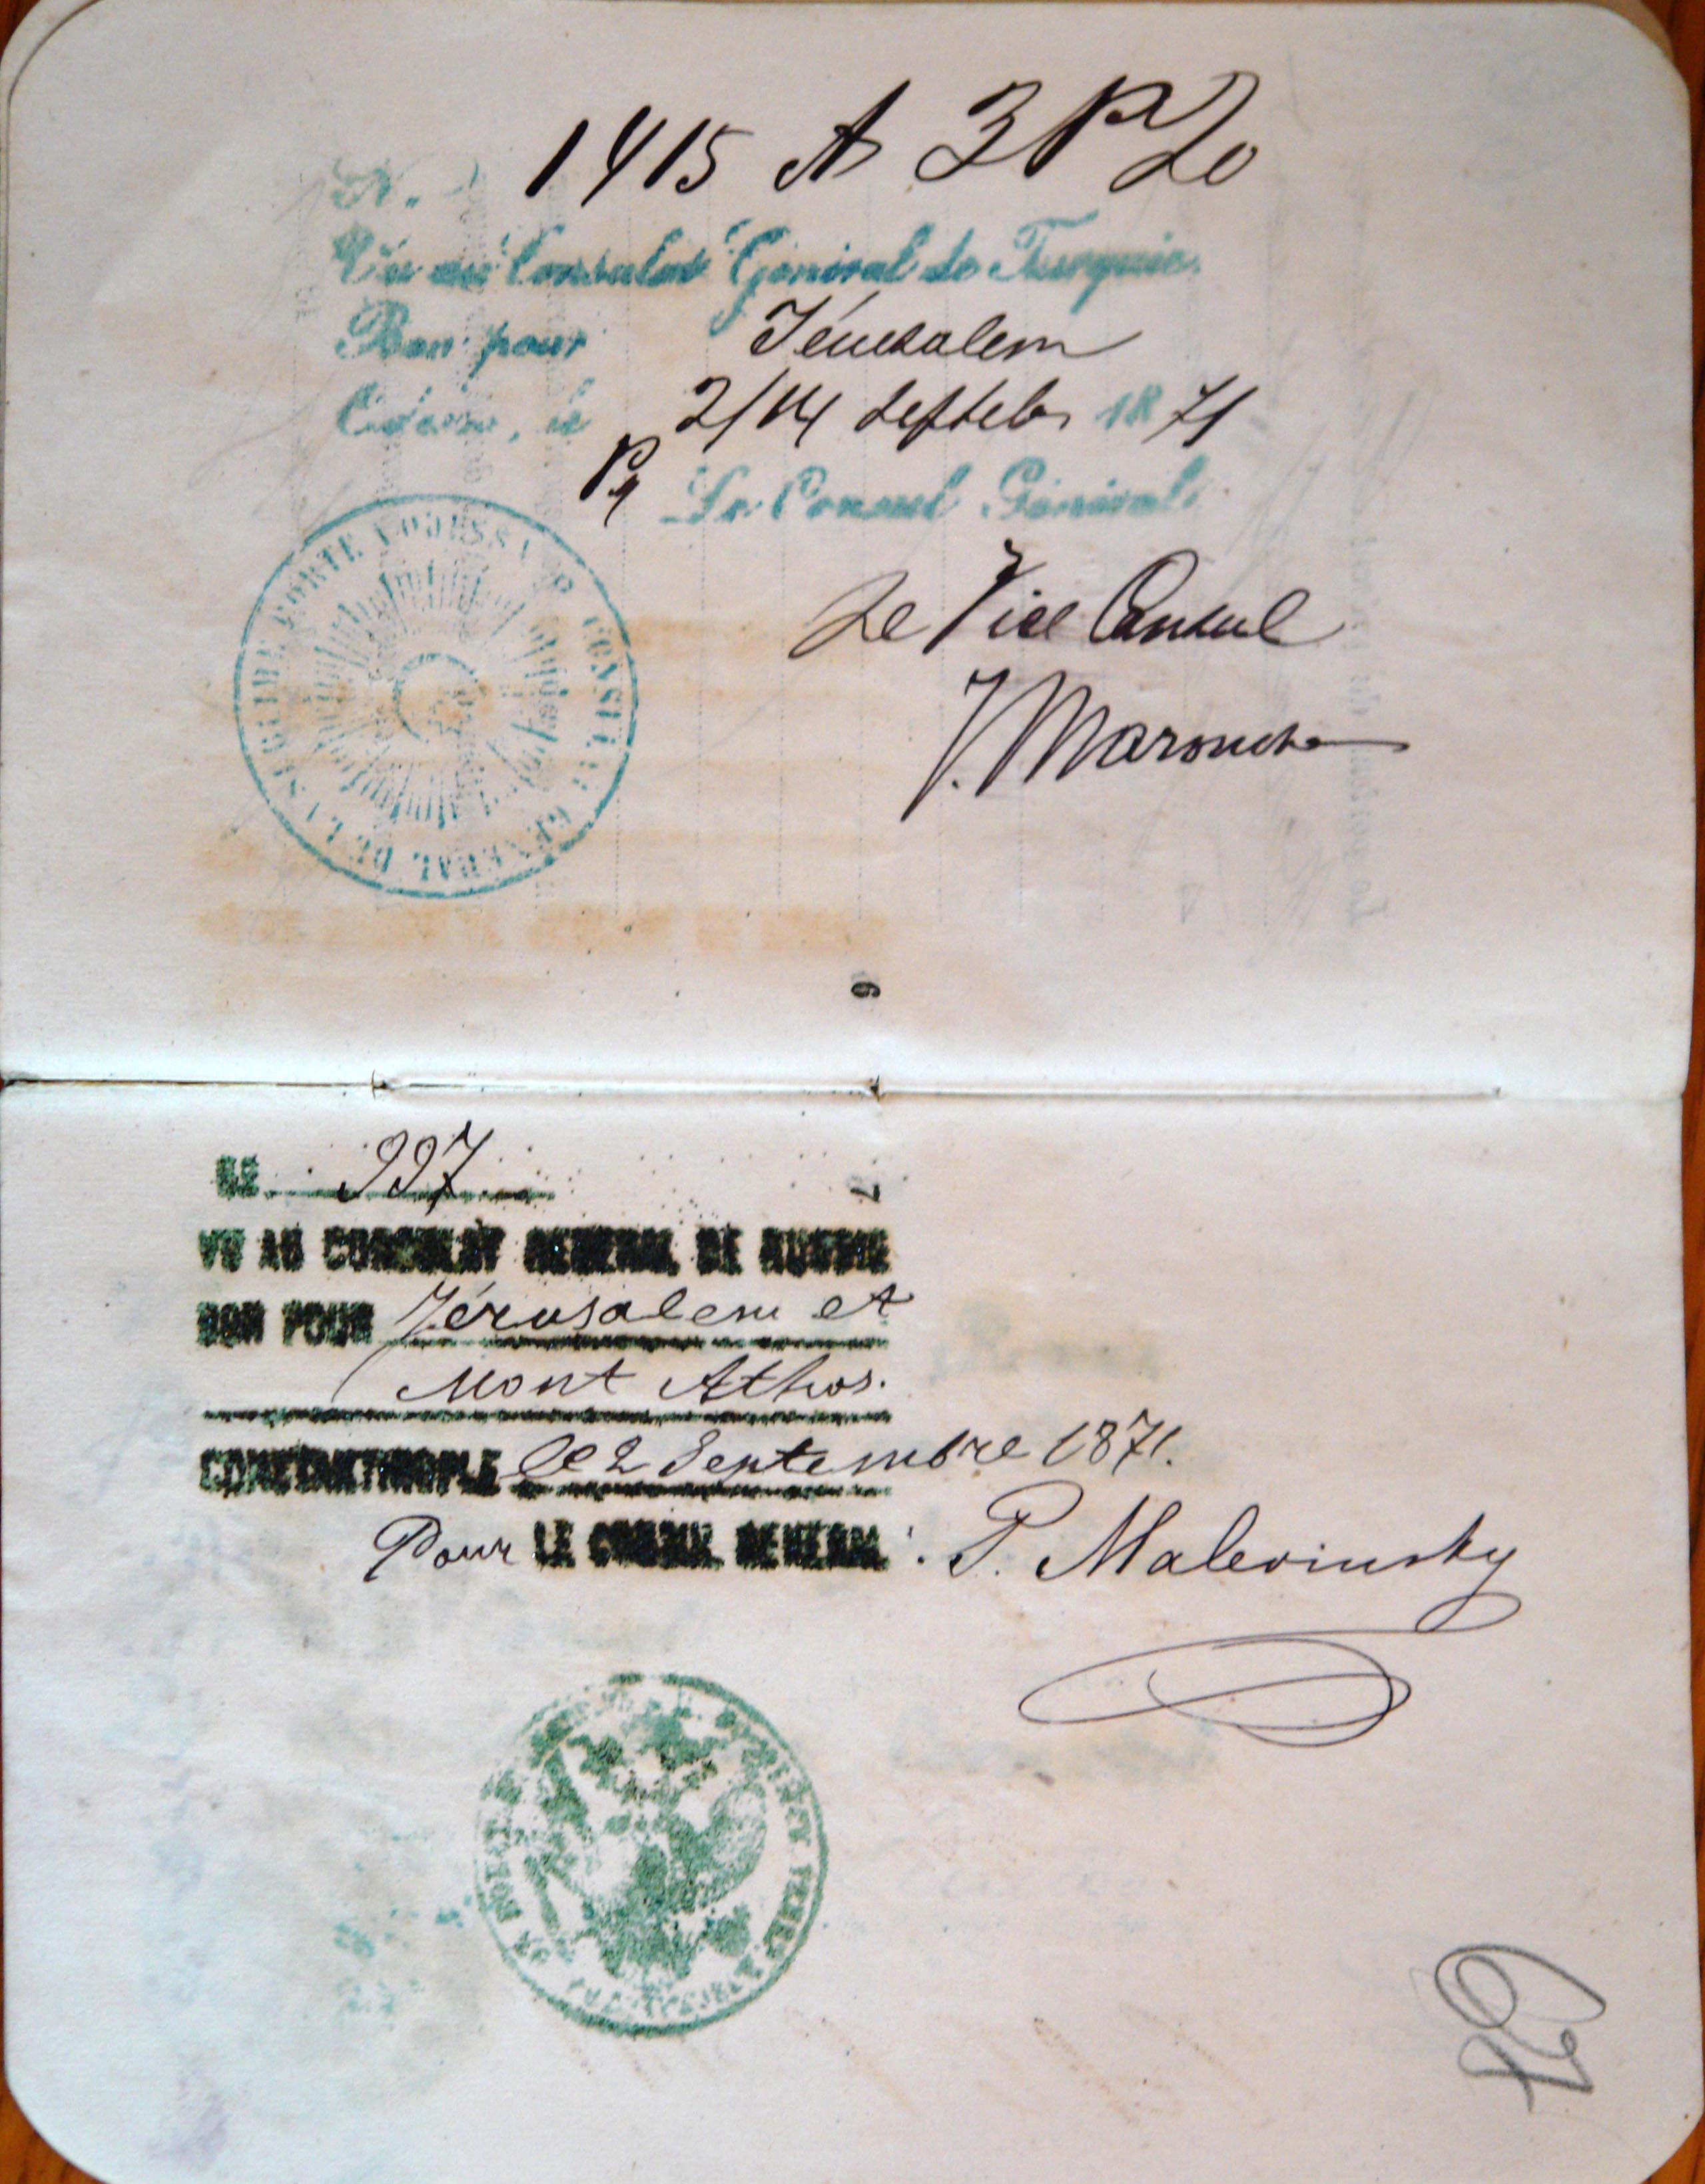 N. 1415 A 3 P 20
Vu au Consulat Général de Turquie
Bon pour Jérusalem
Odessa, le 2/14 Septeb 1871
Pr Le Consul Général
Le Vice Consul
J.
CONSULAT GENERAL DE LA SUBLIME PORTE A ODESSA
6
7
№ 997
VU AU CONSULAT GENERAL DE RUSSIE
BON POUR Jérusalem et
Mont Athos.
CONSTANTINOPLE le 2 Septembre 1871.
Pour LE CONSUL GENERAL: P. Malevinsky